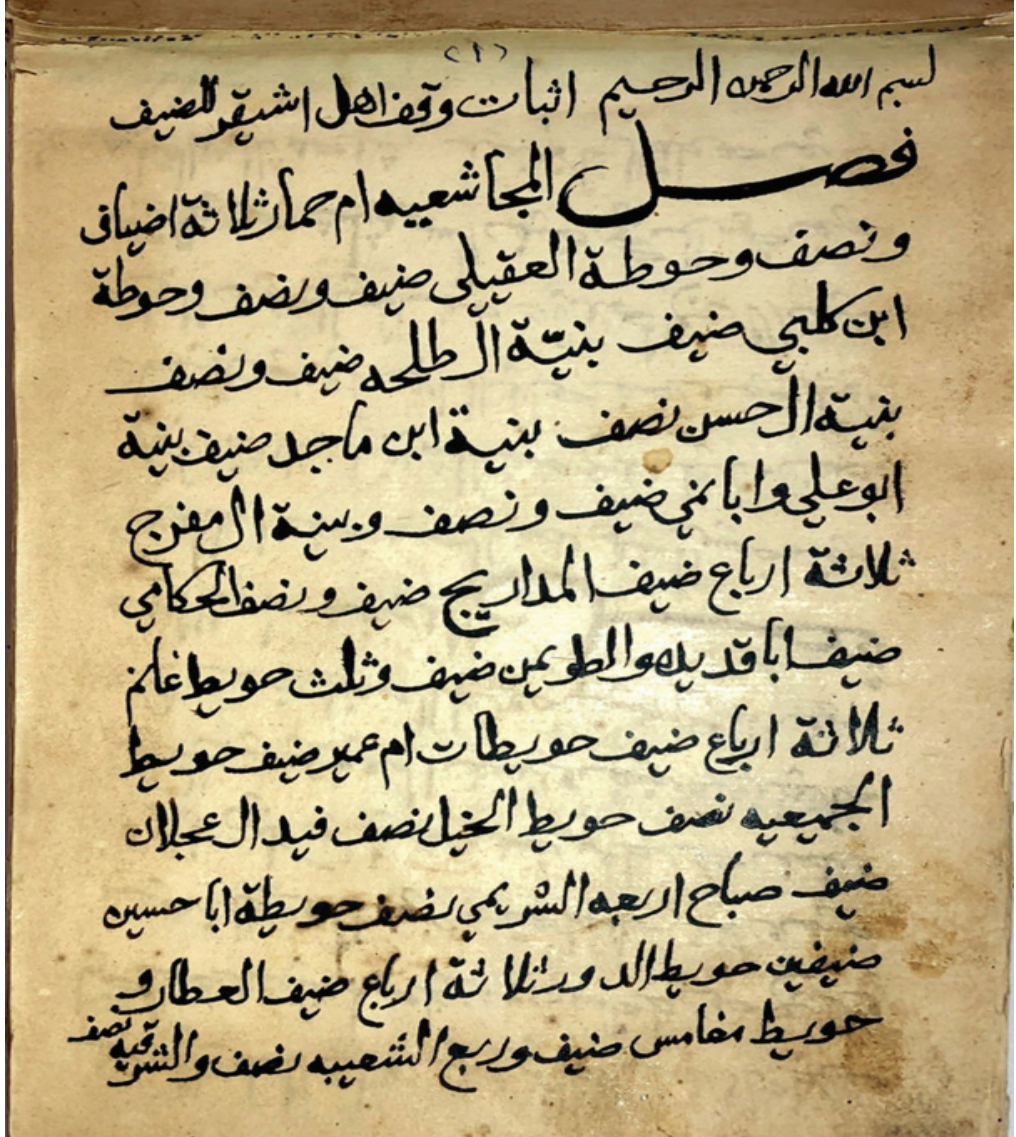 (١)
بسم الله الرحمن الرحيم اثبات وقف اهل اشيقر للضيف
فصل المجاشعيه ام حمار ثلاثة اضياف
ونصف وحوطة العقيلي ضيف ونصف وحوطة
ابن كلبي ضيف بنيّة ال طلحه ضيف ونصف
بنية ال حسن نصف بنية ابن ماجد ضيف بنية
ابو علي وابا نمي ضيف ونصف وبنية ال مفرج
ثلاثة ارباع ضيف المداريج ضيف ونصف الحكامي
ضيف ابا قديله والطويمن ضيف وثلث حويط غانم
ثلاثة ارباع ضيف حويطات ام عمير ضيف حويط
الجميعيه نصف حويط الخيل نصف فيد ال عجلان
ضيف صباح اربعه الشريمي نصف حويطة ابا حسين
ضيفين حويط الدور ثلاثة ارباع ضيف العطار و
حويط مغامس ضيف وربع الشعيبه نصف والشرقيه نصف